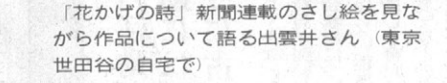 「花かげの詩」新聞連載のさし絵を見な
がら作品について語る出雲井さん（東京
世田谷の自宅で）